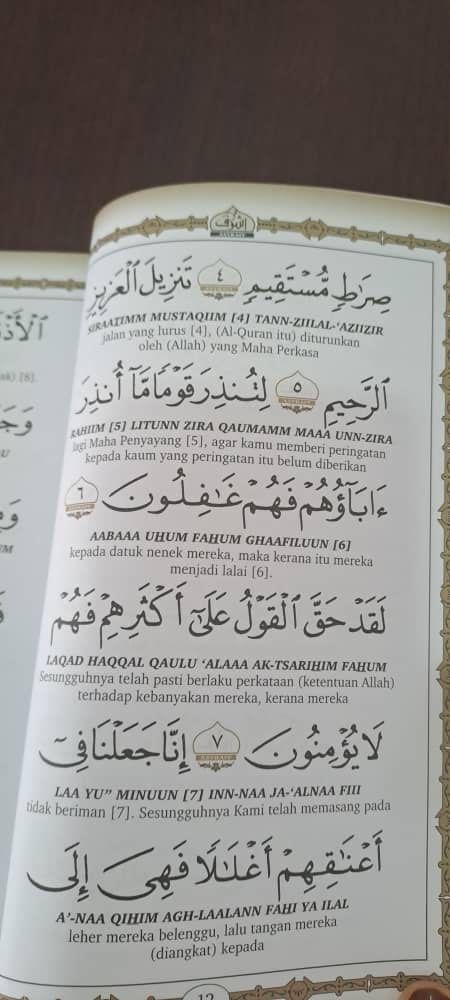 اشرف
صِرَٰطٍ مُّسْتَقِيمٍ ٤ تَنزِيلَ ٱلْعَزِيزِ
SIRAATIMM MUSTAQIIM [4] TANN-ZIILAL-'AZIIZIR
jalan yang lurus [4], (Al-Quran itu) diturunkan
oleh (Allah) yang Maha Perkasa
ٱلرَّحِيمِ ٥ لِتُنذِرَ قَوْمًا مَّآ أُنذِرَ
RAHIIM [5] LITUNN ZIRA QAUMAMM MAAA UNN-ZIRA
lagi Maha Penyayang [5], agar kamu memberi peringatan
kepada kaum yang peringatan itu belum diberikan
ءَابَآؤُهُمْ فَهُمْ غَٰفِلُونَ ٦
AABAAA UHUM FAHUM GHAAFILUUN [6]
kepada datuk nenek mereka, maka kerana itu mereka
menjadi lalai [6].
لَقَدْ حَقَّ ٱلْقَوْلُ عَلَىٰٓ أَكْثَرِهِمْ فَهُمْ
LAQAD HAQQAL QAULU 'ALAAA AK-TSARIHIM FAHUM
Sesungguhnya telah pasti berlaku perkataan (ketentuan Allah)
terhadap kebanyakan mereka, kerana mereka
لَا يُؤْمِنُونَ ٧ إِنَّا جَعَلْنَا فِىٓ
LAA YU" MINUUN [7] INN-NAA JA-'ALNAA FIII
tidak beriman [7]. Sesungguhnya Kami telah memasang pada
أَعْنَٰقِهِمْ أَغْلَٰلًا فَهِىَ إِلَى
A'-NAA QIHIM AGH-LAALANN FAHI YA ILAL
leher mereka belenggu, lalu tangan mereka
(diangkat) kepada